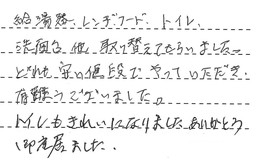 給湯器、レンジフード、トイレ、
洗面台、他、取り替えてもらいました。
どれも安い値段でやっていただき、
有難うございました。
トイレもきれいになりましたありがとう
御座居ました。